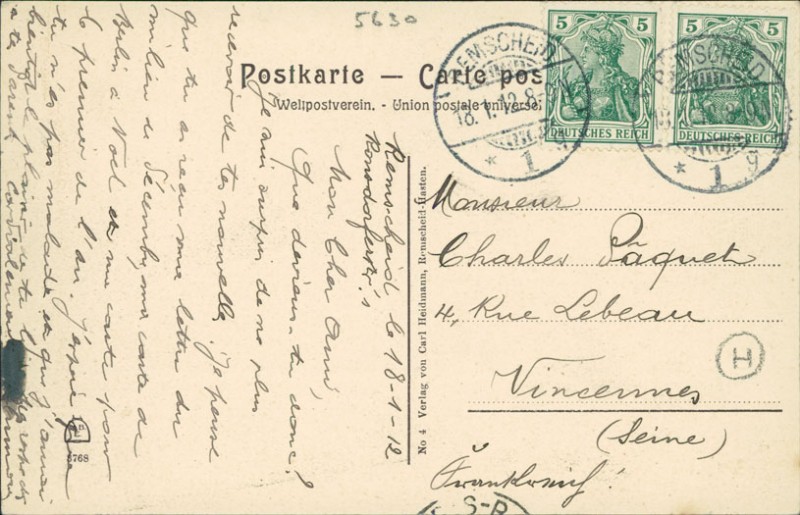 5630
Postkarte — Carte pos
Weltpostverein. - Union postale universel
REMSCHEID
18.1.12.8-9
* 1
5 5
DEUTSCHES REICH
5 5
DEUTSCHES REICH
REMSCHEID
* 1 g
Remscheid, le 18-1-12
Mon Cher Ami,
Que deviens-tu donc?
Je suis surpris de ne plus
recevoir de tes nouvelles. Je pense
que tu as reçu ma lettre du
milieu de Décembre, ma carte de
Berlin à Noël et ma carte pour
le premier de l'an. J'espère que
tu n'es pas malade et que j'aurai
bientôt le plaisir de te
Cordialement
No 4 Verlag von Carl Heidmann, Remscheid-Hasten.
3768
Monsieur
Charles Pâquet
4, Rue Lebeau
Vincennes
(Seine)
Frankreich!
H